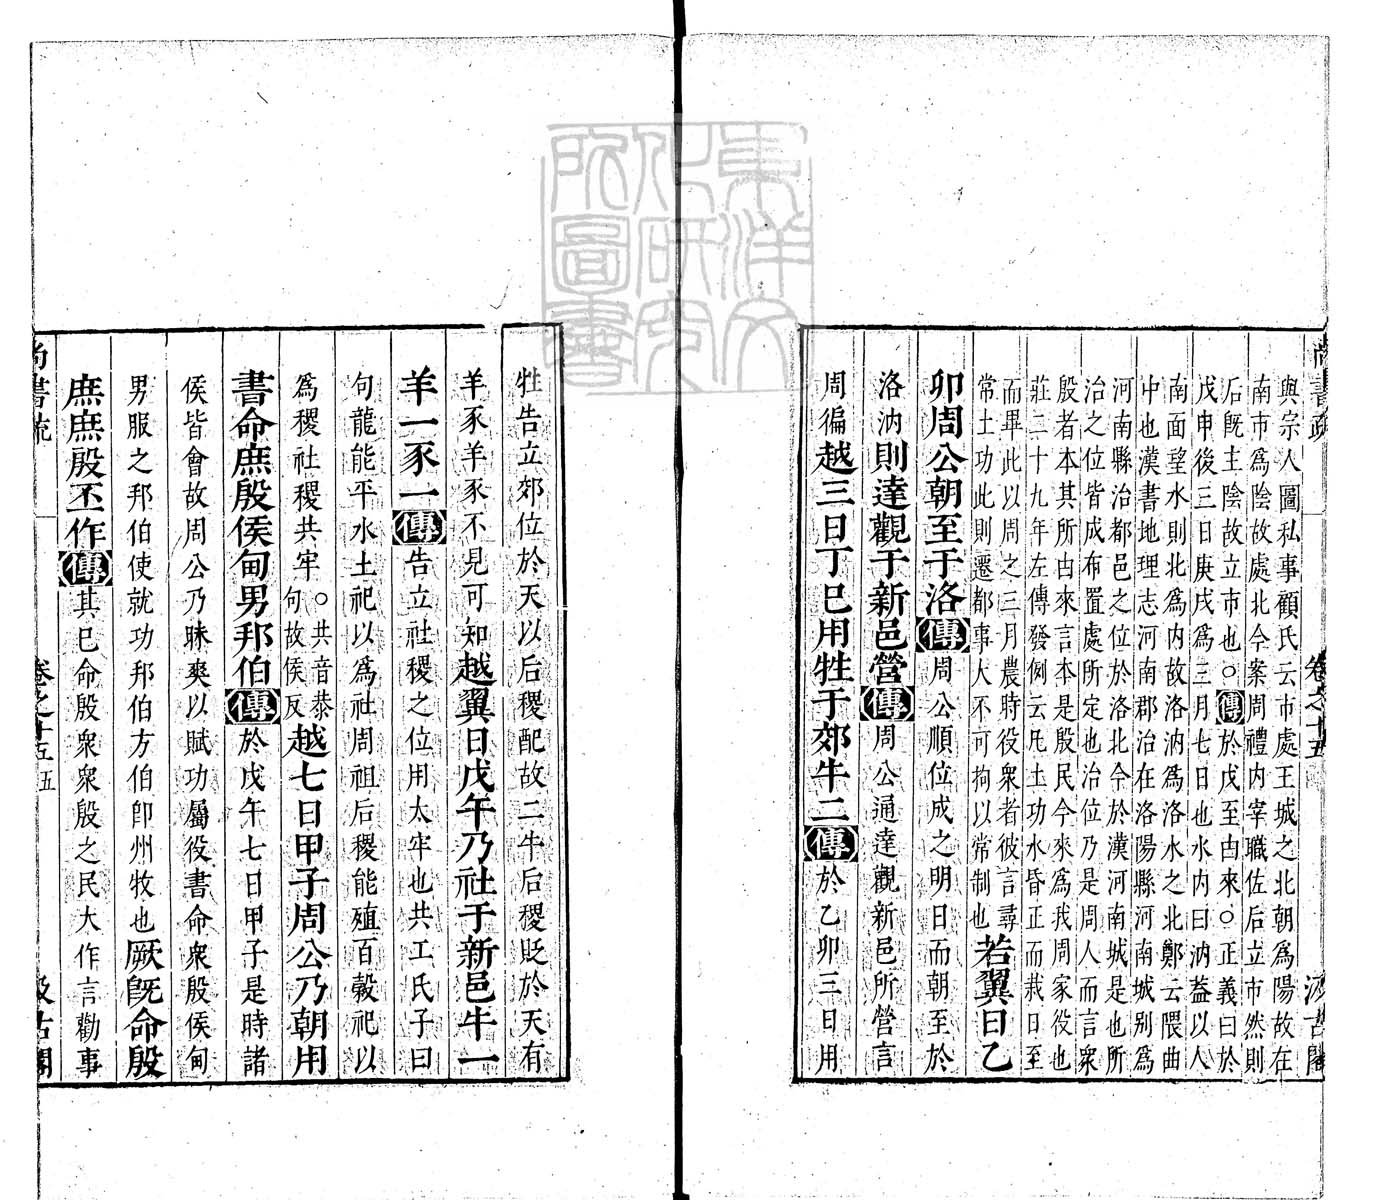 尚書疏 卷之十五 汲古閣
與宗人圖私事顧氏云市處王城之北朝爲陽故在
南市爲陰故處北今案周禮内宰職佐后立市然則
后旣主陰故立市也○傳於戊至由來○正義曰於
戊申後三日庚戌爲三月七日也水内曰汭葢以人
南面望水則北爲内故洛汭爲洛水之北鄭云隈曲
中也漢書地理志河南郡治在洛陽縣河南城别爲
河南縣治都邑之位於洛北今於漢河南城是也所
治之位皆成布置處所定也治位乃是周人而言衆
殷者本其所由來言本是殷民今來爲我周家役也
莊二十九年左傳發例云凡土功水昏正而栽日至
而畢此以周之三月農時役衆者彼言尋
常土功此則遷都事大不可拘以常制也若翼日乙
卯周公朝至于洛傳周公順位成之明日而朝至於
洛汭則達觀于新邑營傳周公通達觀新邑所營言
周徧越三日丁巳用牲于郊牛二傳於乙卯三日用
牲告立郊位於天以后稷配故二牛后稷貶於天有
羊豕羊豕不見可知越翼日戊午乃社于新邑牛一
羊一豕一傳告立社稷之位用太牢也共工氏子曰
句龍能平水土祀以爲社周祖后稷能殖百穀祀以
爲稷社稷共牢○共音恭句故侯反越七日甲子周公乃朝用
書命庶殷侯甸男邦伯傳於戊午七日甲子是時諸
侯皆會故周公乃昧爽以賦功屬役書命衆殷侯甸
男服之邦伯使就功邦伯方伯卽州牧也厥旣命殷
庶庶殷丕作傳其已命殷衆衆殷之民大作言勸事
尚書疏 卷之十五 五 汲古閣
東洋文化研究所圖書